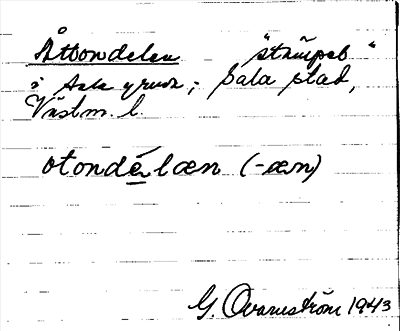 Åttondelen "stämpeb"
i Sala gruva, Sala stad,
Västm. l.
otondélæn (-æn)
G. Qvarnström 1943